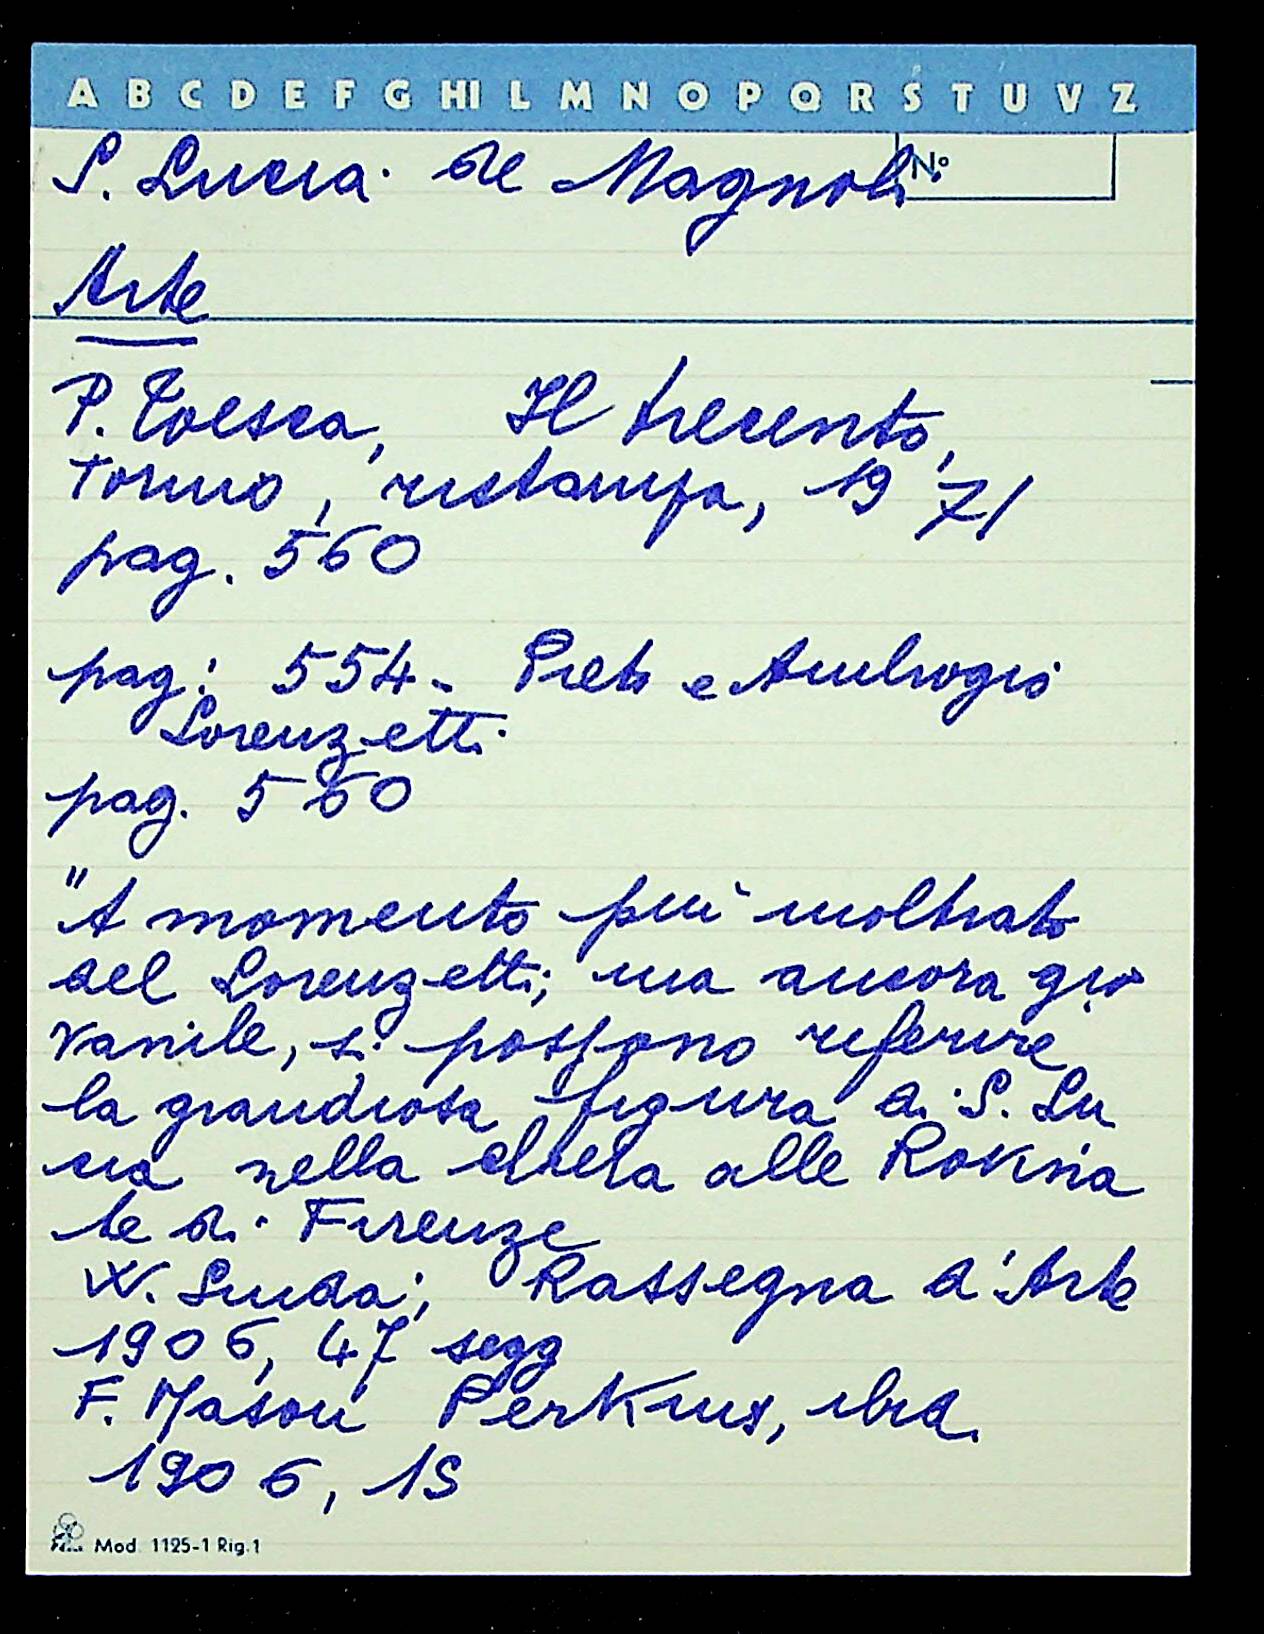 A B C D E F G HI L M N O P Q R S T U V Z
S. Lucia de Magnoli
N°
Arte
P. Toesca, Il trecento,
Torino, ristampa, 1971
pag. 560
pag: 554- Pietro e Ambrogio
Lorenzetti
pag. 560
"A momento più inoltrato
del Lorenzetti; ma ancora gio
vanile, si possono riferire
la grandiosa figura di S. Lu
cia nella chiesa alle Rovina
te di Firenze
W. Suida, Rassegna d'Arte
1906, 47 segg
F. Mason Perkins, ibid.
1906, 13
Mod. 1125-1 Rig.1